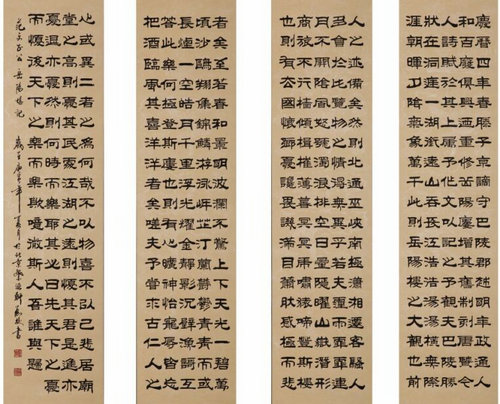 慶曆四年春滕子京謫守巴陵郡越明年政通人
和百廢具興乃重修岳陽樓增其舊制刻唐賢今
人詩賦於其上屬予作文以記之予觀夫巴陵勝
狀在洞庭一湖銜遠山吞長江浩浩湯湯橫無際
涯朝暉夕陰氣象萬千此則岳陽樓之大觀也前
人之述備矣然則北通巫峽南極瀟湘遷客騷人
多會於此覽物之情得無異乎若夫霪雨霏霏連
月不開陰風怒號濁浪排空日星隱曜山岳潛形
商旅不行檣傾楫摧薄暮冥冥虎嘯猿啼登斯樓
也則有去國懷鄉憂讒畏譏滿目蕭然感極而悲
者矣至若春和景明波瀾不驚上下天光一碧萬
頃沙鷗翔集錦鱗游泳岸芷汀蘭鬱鬱青青而或
長煙一空皓月千里浮光躍金靜影沉璧漁歌互
答此樂何極登斯樓也則有心曠神怡寵辱皆忘
把酒臨風其喜洋洋者矣嗟夫予嘗求古仁人之
心或異二者之為何哉不以物喜不以己悲居廟
堂之高則憂其民處江湖之遠則憂其君是進亦
憂退亦憂然則何時而樂耶其必曰先天下之憂
而憂後天下之樂而樂歟噫微斯人吾誰與歸
范文正公岳陽樓記 書